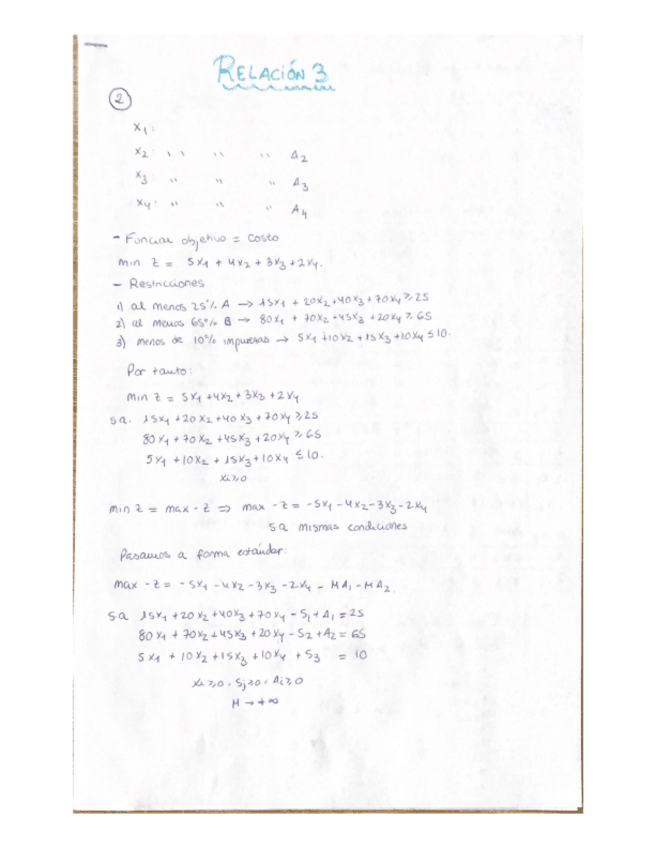 RELACIÓN 3
2
X1:
X2: '' '' '' A2
X3 '' '' '' A3
X4: '' '' '' A4
- Función objetivo = Costo
min Z = 5X1 + 4X2 + 3X3 + 2X4.
- Restricciones
1) al menos 25% A → 15X1 + 20X2 + 40X3 + 70X4 ≥ 25
2) al menos 65% B → 80X1 + 70X2 + 45X3 + 20X4 ≥ 65
3) menos de 10% impurezas → 5X1 + 10X2 + 15X3 + 10X4 ≤ 10.
Por tanto:
min Z = 5X1 + 4X2 + 3X3 + 2X4
sa. 15X1 + 20X2 + 40X3 + 70X4 ≥ 25
80X1 + 70X2 + 45X3 + 20X4 ≥ 65
5X1 + 10X2 + 15X3 + 10X4 ≤ 10.
Xi ≥ 0
min Z = max - Z ⇒ max - Z = -5X1 - 4X2 - 3X3 - 2X4
sa mismas condiciones
Pasamos a forma estándar:
max - Z = -5X1 - 4X2 - 3X3 - 2X4 - MA1 - MA2.
sa 15X1 + 20X2 + 40X3 + 70X4 - S1 + A1 = 25
80X1 + 70X2 + 45X3 + 20X4 - S2 + A2 = 65
5X1 + 10X2 + 15X3 + 10X4 + S3 = 10
Xi ≥ 0, Sj ≥ 0, Ai ≥ 0
M → +∞